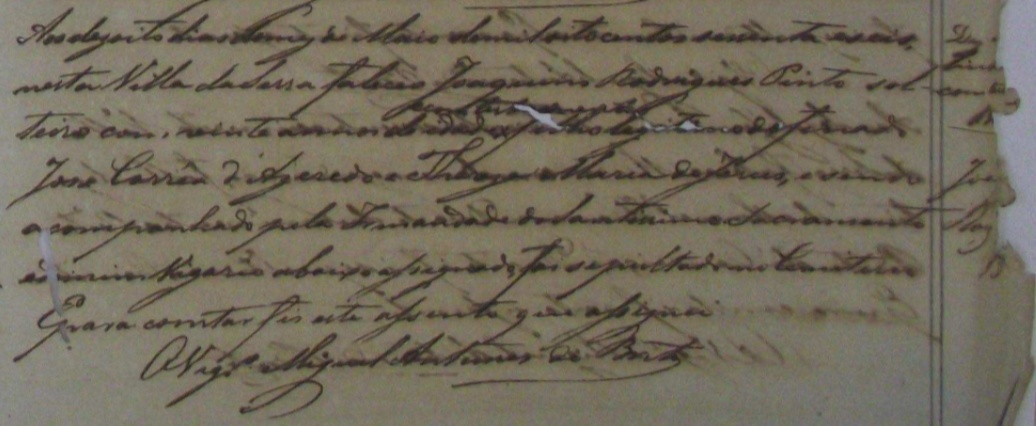 Aos dezoito dias do mez de Maio de mil oito centos secenta e seis,
nesta Villa da Serra faleceo Joaquim Rodrigues Pinto sol-
teiro com vinte annos de idade filho legitimo do finado
José Corrêa d'Azeredo e Maria de Jesus, e sendo
acompanhado pela Irmandade do Santissimo Sacramento
e por mim Vigario abaixo assignado, foi sepultado no Cemiterio
E para constar fis este assento que assignei
O Vigr.º Miguel Antunes de Brito